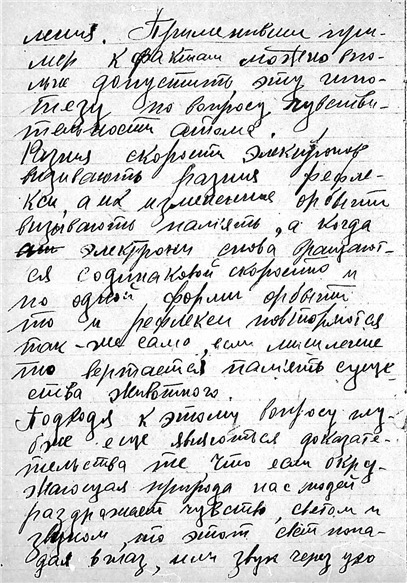 ления. Применивши при-
мер к фактам можно впо-
лне допустить, эту гипо-
тезу по вопросу чувстви-
тельности атома.
Разния скорости электронов
визивають разния рефле-
кси, а их изменение орбыти
визывають памъять, а когда
электрони снова вращают-
ся с одинаковой скоростю и
по одной форми орбыти
то и рефлекси повторяются
так-же само, если мишление
то вертается памъять суще-
ства животного.
Подходя к этому вопросу глу-
бже еще являются доказате-
тельства те, что если окру-
жающая природа нас людей
раздражает чувство, светом и
звуком, то этот свет попа-
дая в глаз, или звук через ухо